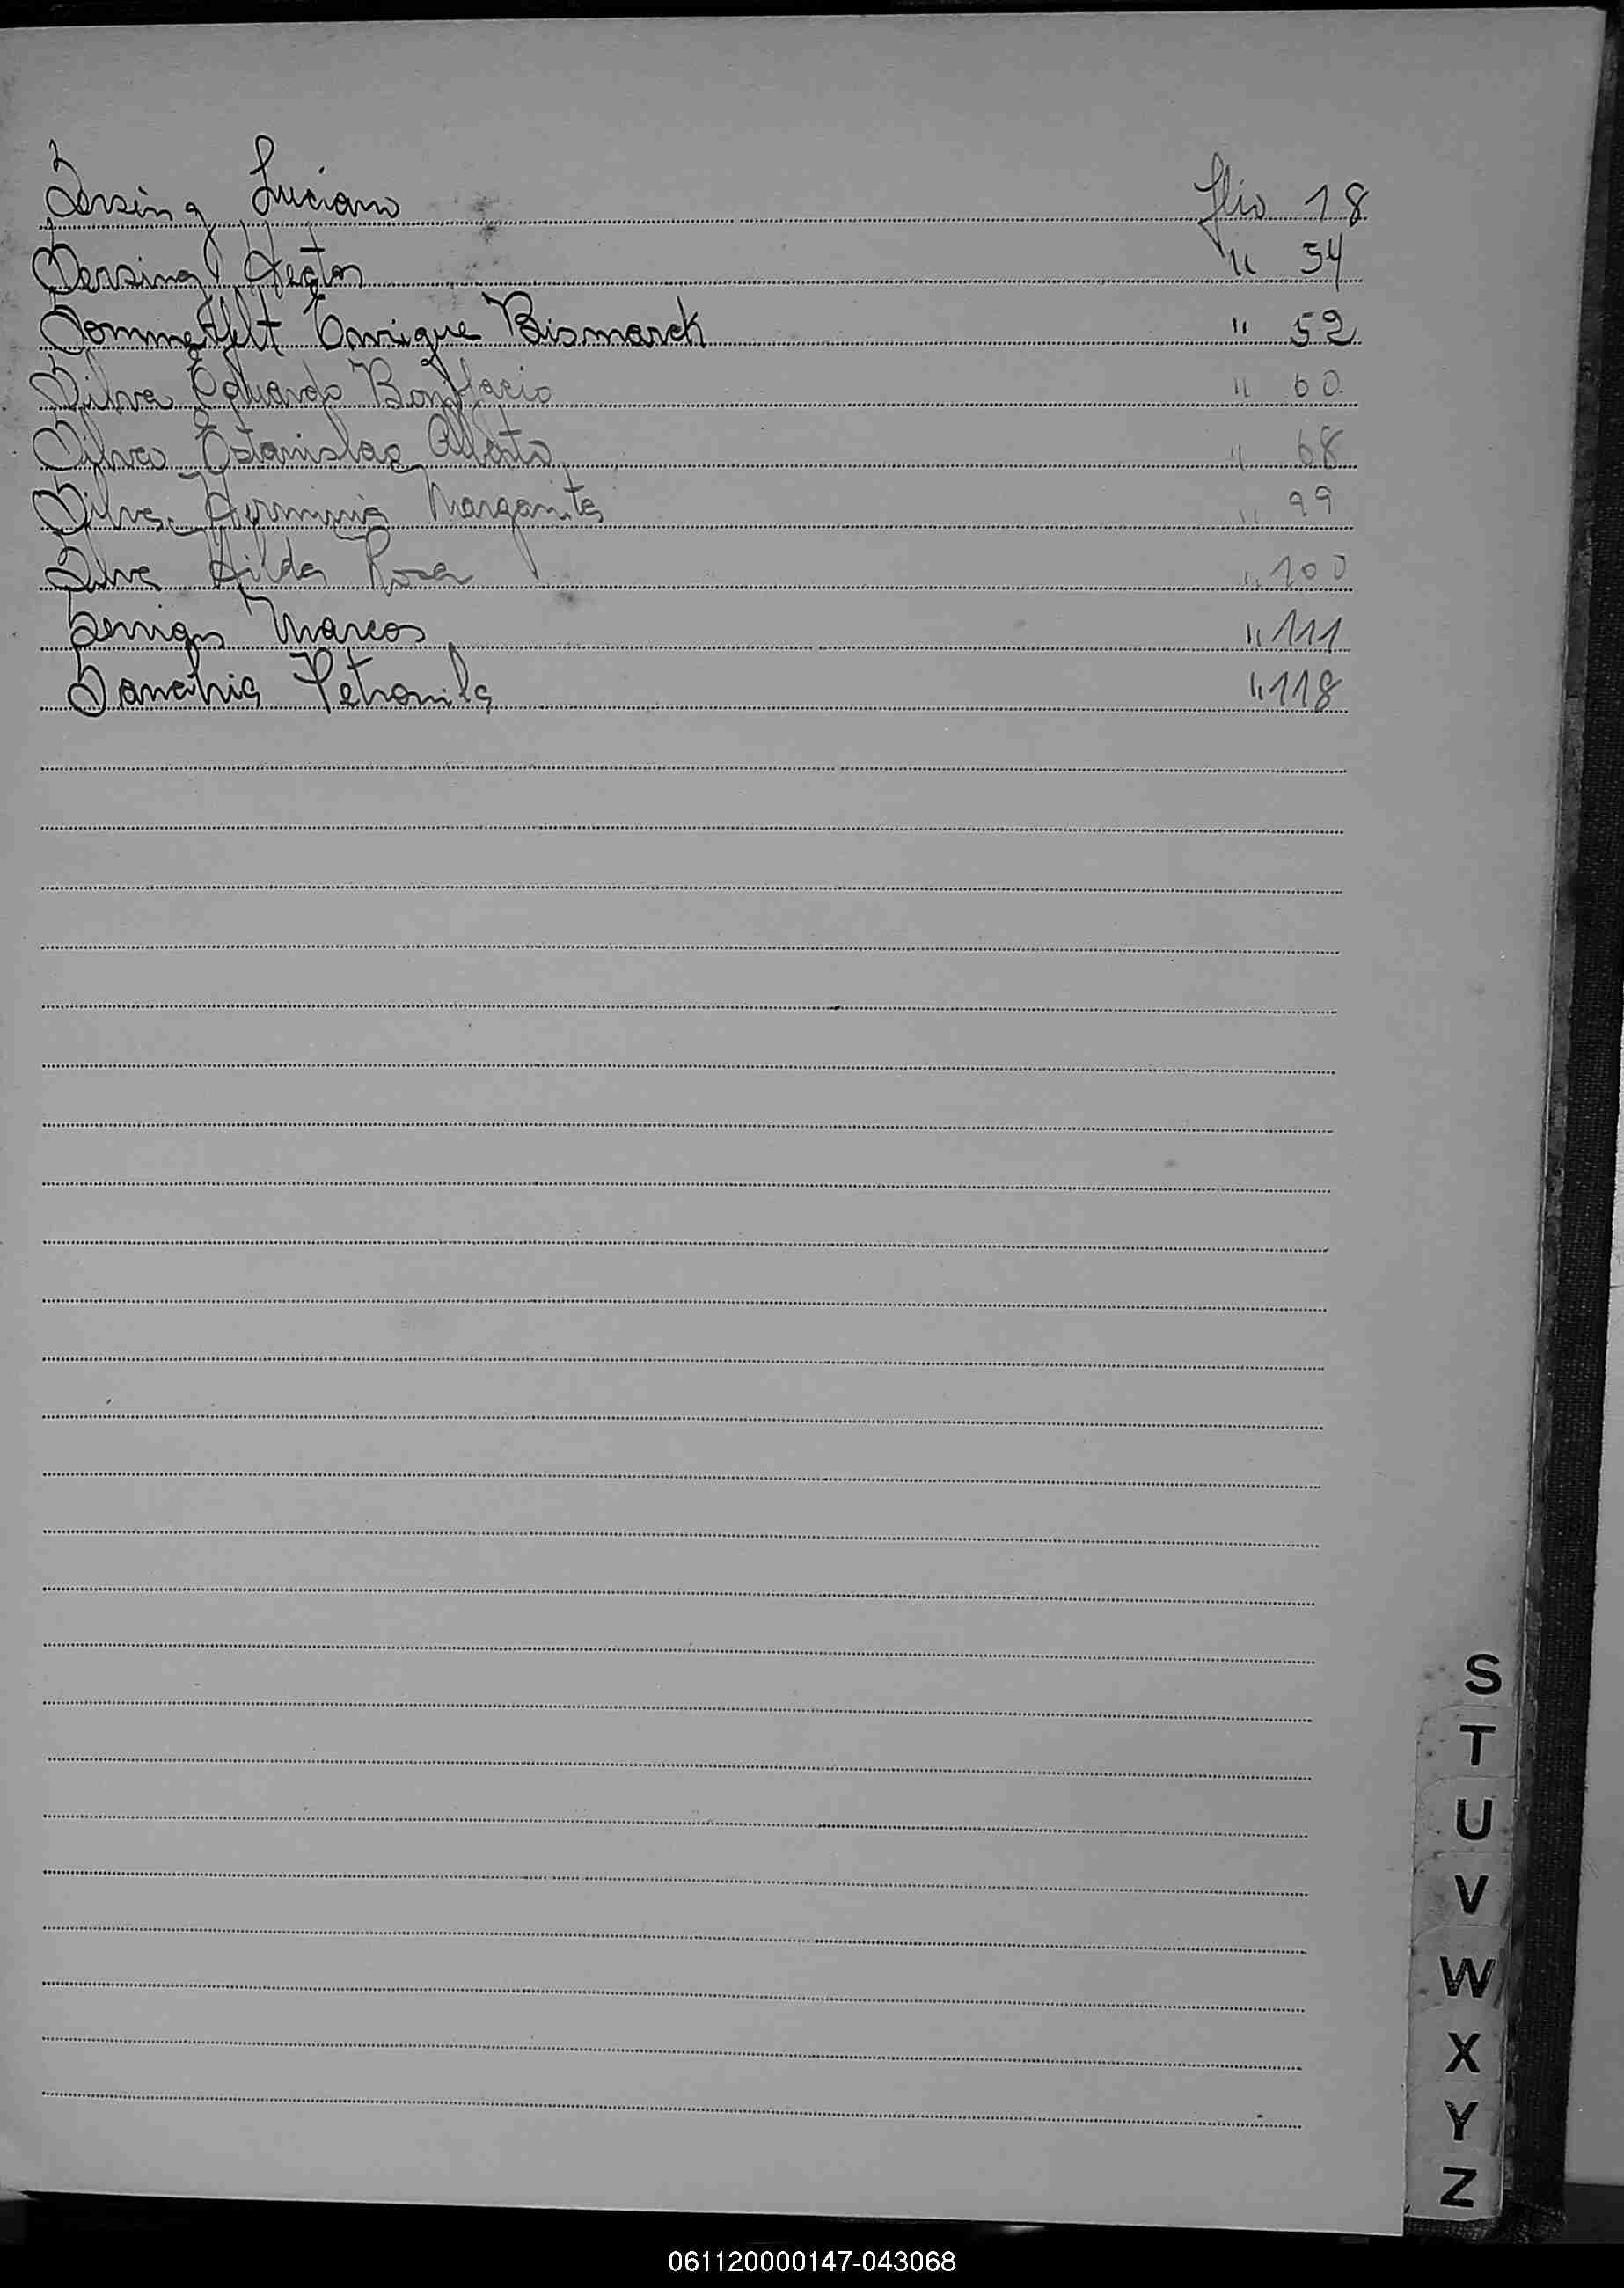 Sersing Luciano flio 18
Sersing Hector " 54
Sommerfelt Enrique Bismarck " 52
Silva Eduardo Bonifacio " 60
Silva Estanislao Alberto " 68
Silva Herminia Margarita " 99
Silva Hilda Rosa " 100
Marcos " 111
Petronila " 118
S
T
U
V
W
X
Y
Z
061120000147-043068